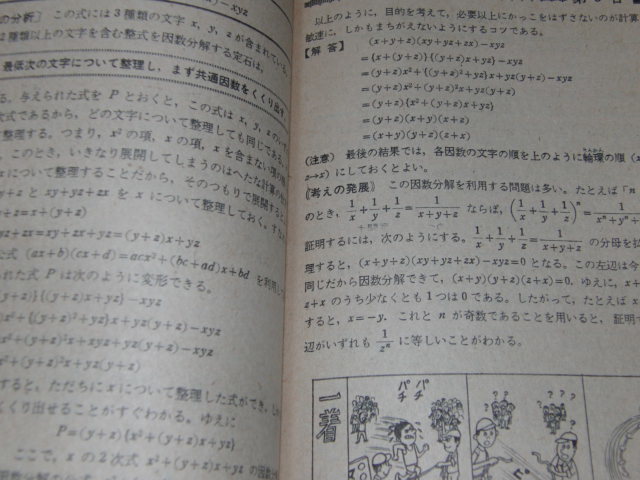 -xyz
の分析〕 この式には3種類の文字 x, y, z が含まれている。
2種類以上の文字を含む整式を因数分解する定石は,
最低次の文字について整理し, まず共通因数をくくり出す
る。与えられた式を P とおくと, この式は x, y, z の
式であるから, どの文字について整理しても同じである。
整理する。つまり, x²の項, x の項, x を含まない項の
このとき, いきなり展開してしまうのはへたな計算の
xについて整理することだから, そのつもりで展開すると,
y+z と xy+yz+zx を x について整理しておく。
y+z=x+(y+z)
yz+zx=xy+zx+yz=(y+z)x+yz
公式 (ax+b)(cx+d)=acx²+(bc+ad)x+bd を利用
た式 P は次のように変形できる。
(y+z)}{(y+z)x+yz}-xyz
x²+{(y+z)²+yz}x+yz(y+z)-xyz
x²+(y+z)²x+xyz+yz(y+z)-xyz
x²+(y+z)²x+yz(y+z)
すると, ただちに x について整理した式ができ,
くくり出せることがすぐわかる。ゆえに
P=(y+z){x²+(y+z)x+yz}
ここで, x の2次式 x²+(y+z)x+yz の因数
以上のように, 目的を考えて, 必要以上にかっこをはずさないのが計算
敏速に, しかもまちがえないようにするコツである。
【解 答】 (x+y+z)(xy+yz+zx)-xyz
={x+(y+z)}{(y+z)x+yz}-xyz
=(y+z)x²+{(y+z)²+yz}x+yz(y+z)-xyz
=(y+z)x²+(y+z)²x+yz(y+z)
=(y+z){x²+(y+z)x+yz}
=(y+z)(x+y)(x+z)
=(x+y)(y+z)(z+x)
(注意) 最後の結果では, 各因数の文字の順を上のように輪環の順 (
z→x) にしておくとよい。
《考えの発展》 この因数分解を利用する問題は多い。たとえば「n
のとき, 1/x+1/y+1/z=1/(x+y+z) ならば, (1/x+1/y+1/z)ⁿ=1/(xⁿ+yⁿ+
証明するには, 次のようにする。1/x+1/y+1/z=1/(x+y+z) の分母を払
理すると, (x+y+z)(xy+yz+zx)-xyz=0 となる。この左辺は今
同じだから因数分解できて, (x+y)(y+z)(z+x)=0. ゆえに, x+
z+x のうち少なくとも1つは0である。したがって, たとえば x
すると, x=-y. これと n が奇数であることを用いると, 証明す
辺がいずれも 1/zⁿ に等しいことがわかる。
一着
パチ
パチ
???
???
ピ